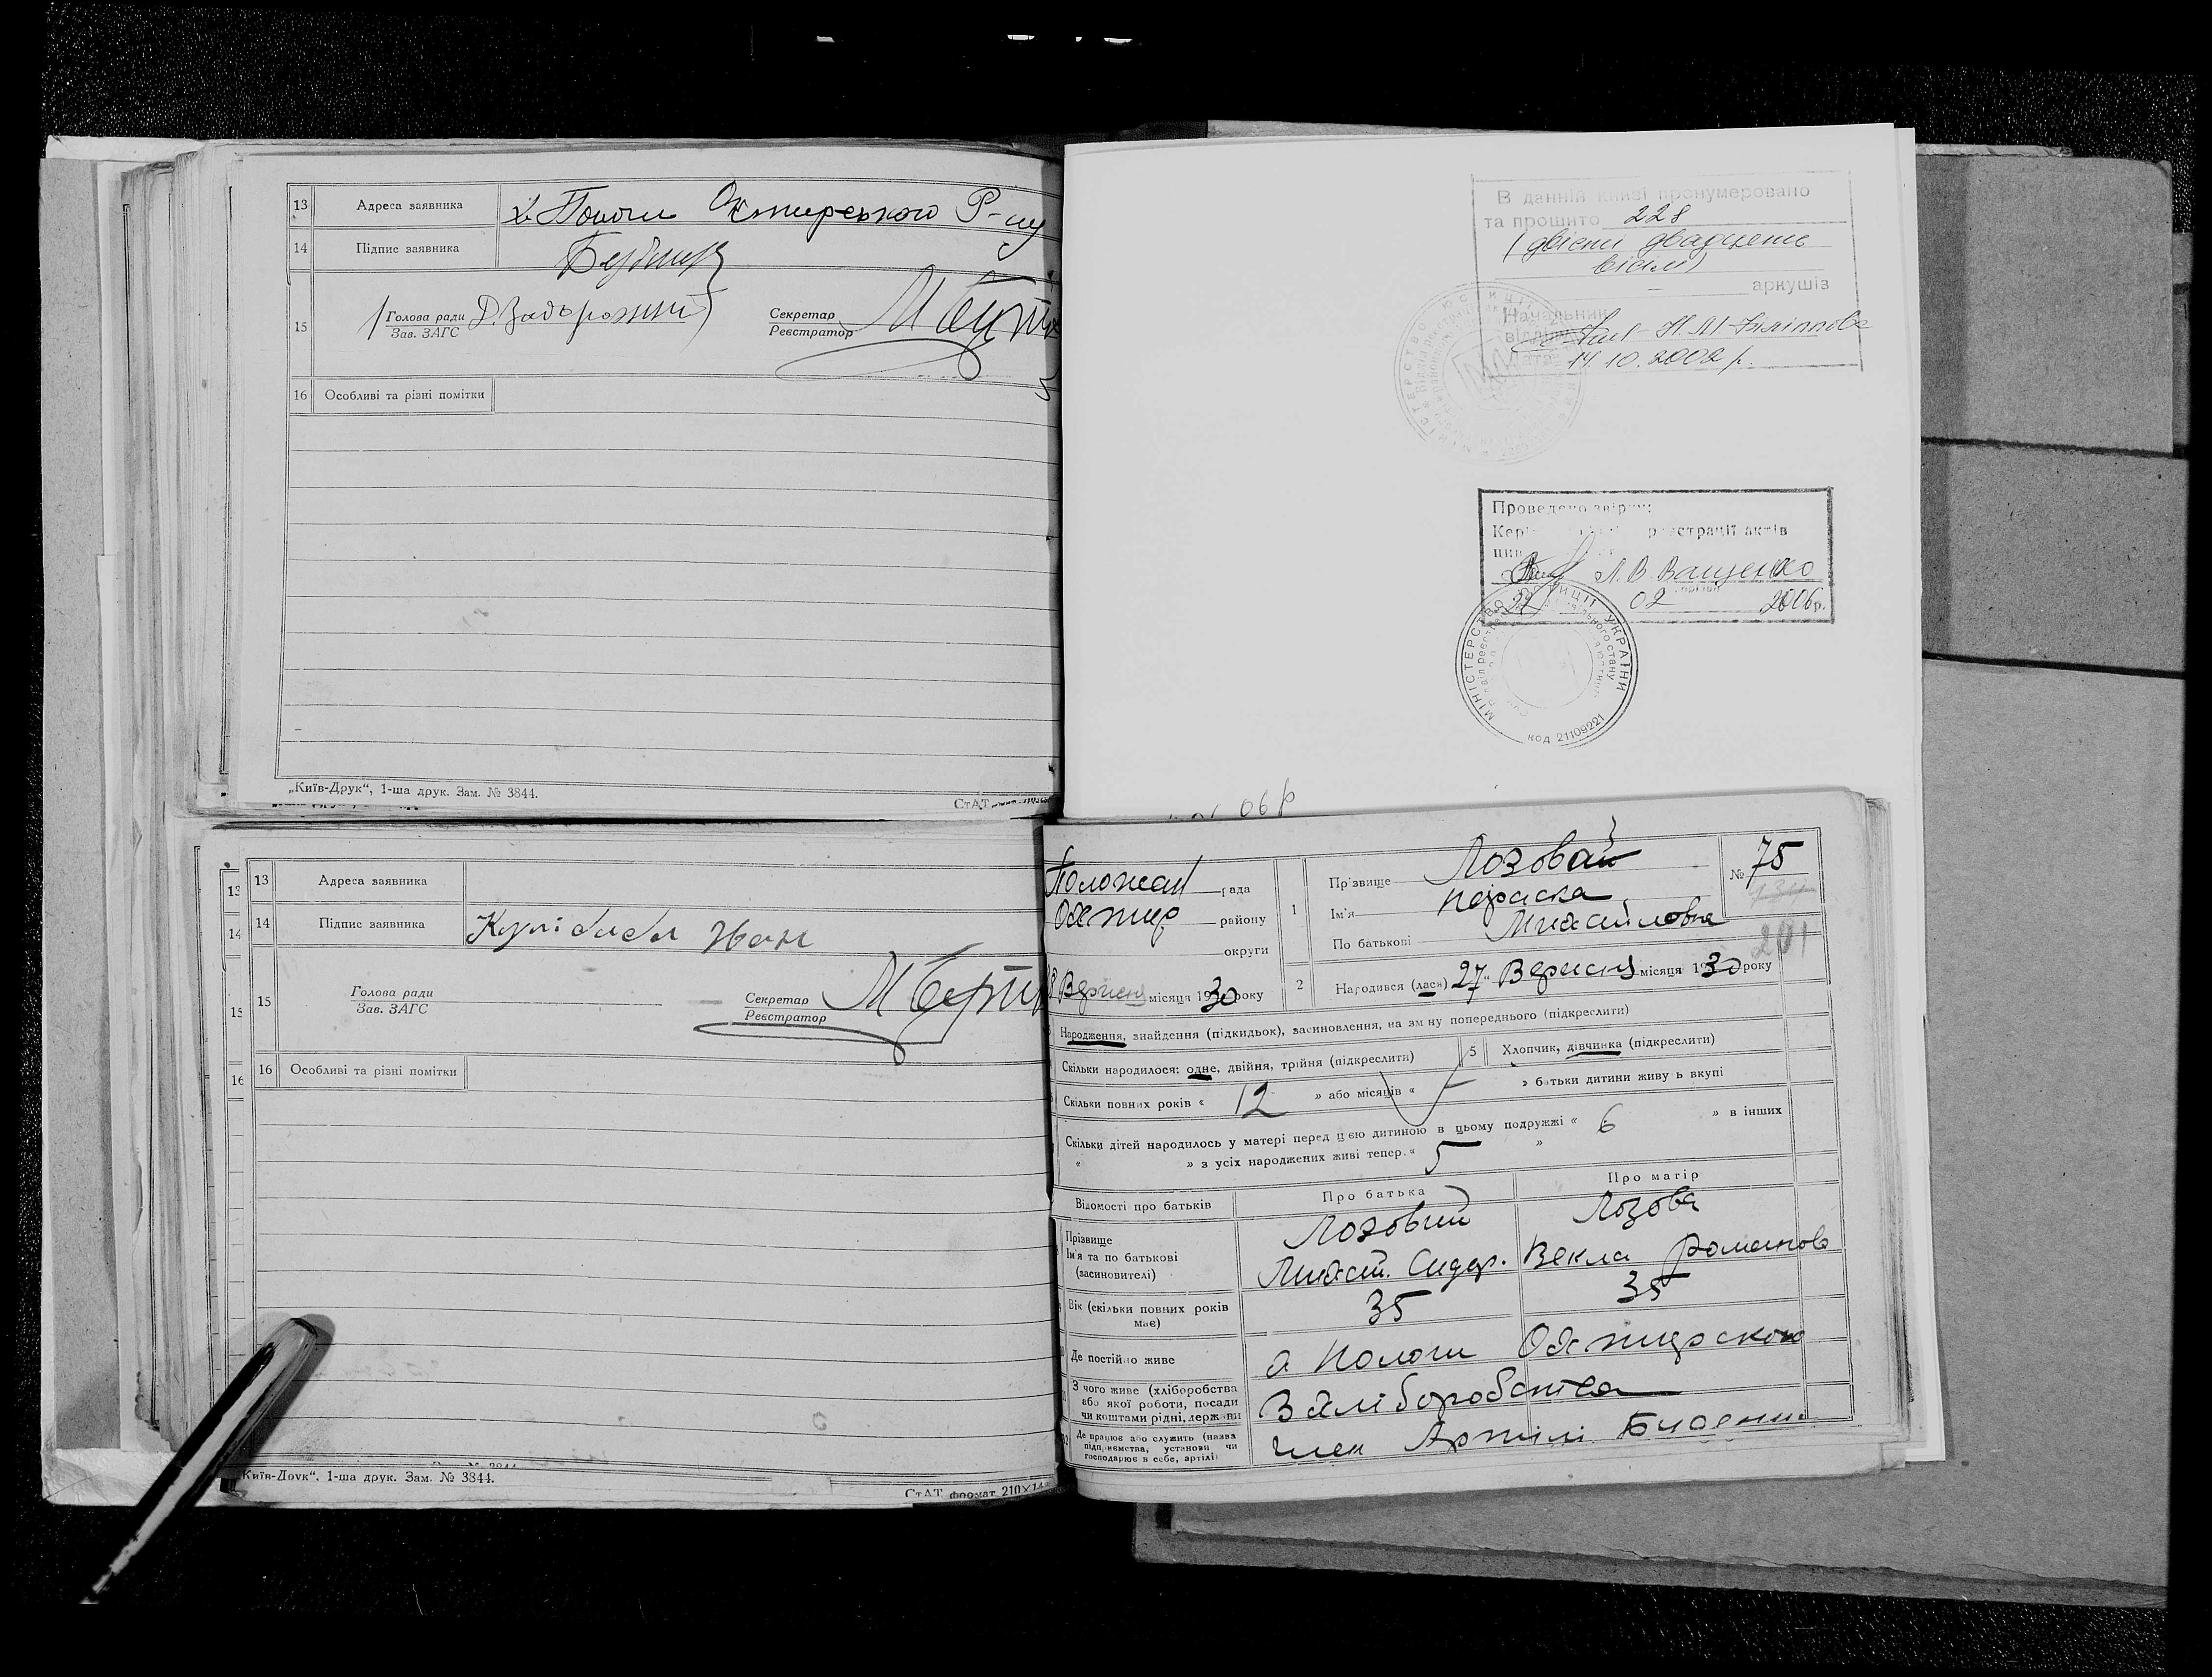 13 Адреса заявника
14 Підпис заявника
15 Голова ради
Зав. ЗАГС Д. Задорожний
Секретар
Реєстратор
16 Особливі та різні помітки
„Київ-Друк“, 1-ша друк. Зам. № 3844.
СтАТ
В данній книзі пронумеровано
та прошито 228
(двісти двадцять
вісім)
аркушів
Начальник
відділу
14.10.2002 р.
Проведено звірку
реєстрації актів
Л.В Ващенко
22 02 2006р.
МІНІСТЕРСТВО ЮСТИЦІЇ УКРАЇНИ
код 21109221
06 р
13 Адреса заявника
14 Підпис заявника Кулібаба Іван
15 Голова ради
Зав. ЗАГС
Секретар
Реєстратор
16 Особливі та різні помітки
Київ-Друк“, 1-ша друк. Зам. № 3844.
СтАТ формат 210×14
рада
району
округи
Вересня місяця 1930 року
1 Прізвище Лозовай
Ім'я Параска
По батькові Михайловна
№ 75
201
2 Народився (лася) 27 „ Вересня місяця 1930 року
Народження, знайдення (підкидьок), засиновлення, на зміну попереднього (підкреслити)
Скільки народилося: одне, двійня, трійня (підкреслити)
5 Хлопчик, дівчинка (підкреслити)
Скільки повних років « 12 » або місяців « – » батьки дитини живуть вкупі
Скільки дітей народилось у матері перед цією дитиною в цьому подружжі « 6 » в інших
« » з усіх народжених живі тепер « 5 »
Відомості про батьків
Про батька
Про матір
Прізвище
Ім'я та по батькові
(засиновителі)
Лозовий
Михай. Сидор.
Лозова
Векла Романов
Вік (скільки повних років
має)
35
35
Де постійно живе
х. Пологи Охтирского
З чого живе (хліборобства
або якої роботи, посади
чи коштами рідні, держави
З хліборобства
Де працює або служить (назва
підприємства, установи чи
господарює в себе, артілі)
член Артілі